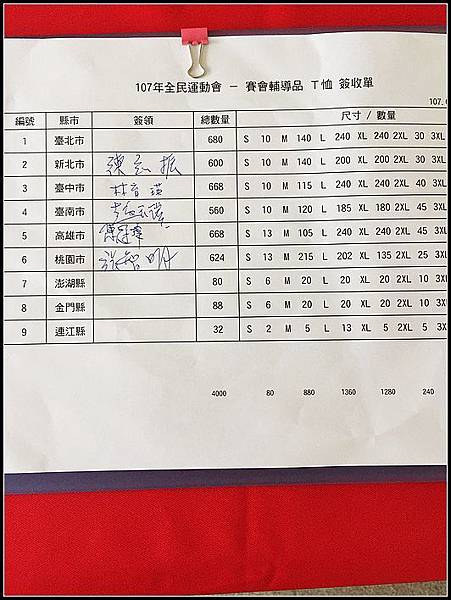 107年全民運動會 － 賽會輔導品 T恤 簽收單
107.
編號 縣市 簽領 總數量 尺寸 / 數量
1 臺北市 680 S 10 M 140 L 240 XL 240 2XL 30 3XL
2 新北市 600 S 10 M 140 L 200 XL 200 2XL 30 3XL
3 臺中市 林音瑛 668 S 10 M 115 L 240 XL 240 2XL 40 3XL
4 臺南市 560 S 10 M 120 L 185 XL 180 2XL 45 3XL
5 高雄市 668 S 13 M 105 L 240 XL 240 2XL 45 3XL
6 桃園市 624 S 13 M 215 L 202 XL 135 2XL 25 3XL
7 澎湖縣 80 S 6 M 20 L 20 XL 20 2XL 10 3XL
8 金門縣 88 S 6 M 20 L 20 XL 20 2XL 10 3XL
9 連江縣 32 S 2 M 5 L 13 XL 5 2XL 5 3XL
4000 80 880 1360 1280 240